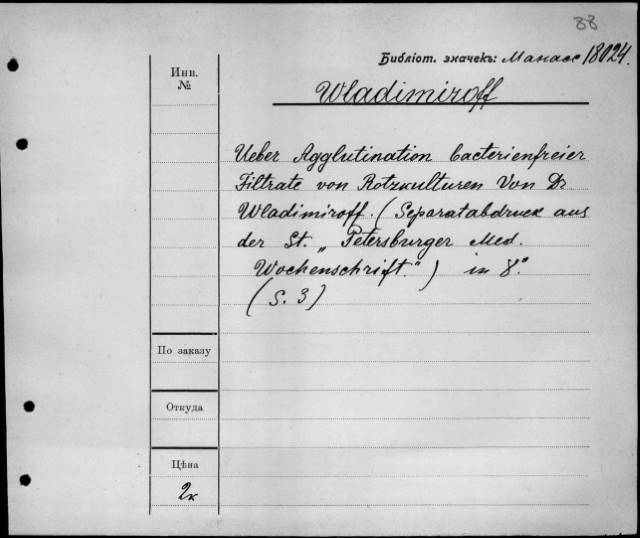 88
Библіот. значекъ: Манасс 18024.
Инв.
№
Wladimiroff
Ueber Agglutination bacterienfreier
Filtrate von Rotzkulturen Von Dr
Wladimiroff. (Separatabdruck aus
der St. „Petersburger Med.
Wochenschrift.") in 8°.
(S. 3)
По заказу
Откуда
Цѣна
2к